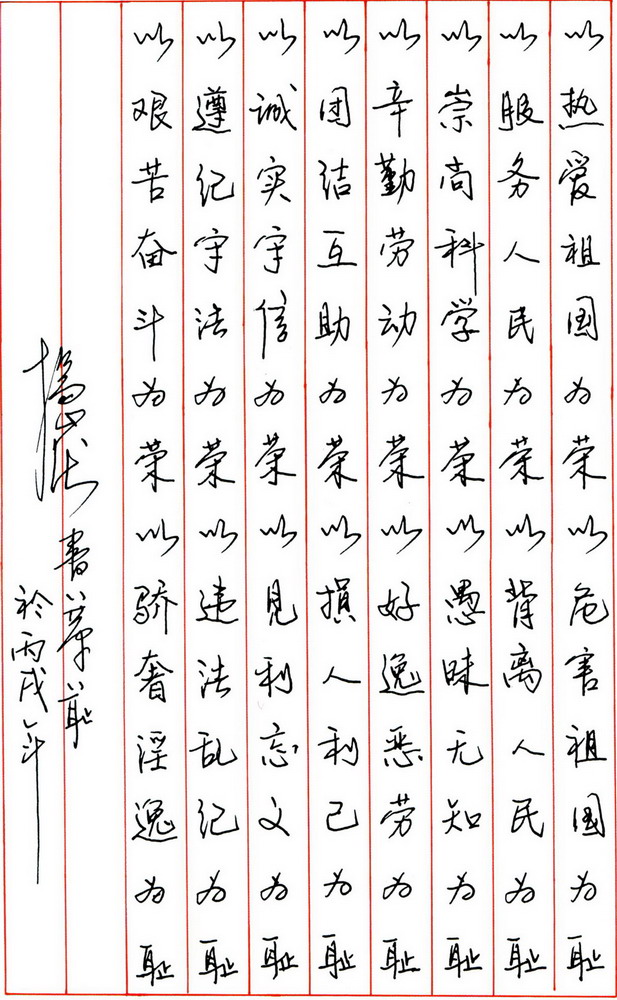 以热爱祖国为荣以危害祖国为耻
以服务人民为荣以背离人民为耻
以崇尚科学为荣以愚昧无知为耻
以辛勤劳动为荣以好逸恶劳为耻
以团结互助为荣以损人利己为耻
以诚实守信为荣以见利忘义为耻
以遵纪守法为荣以违法乱纪为耻
以艰苦奋斗为荣以骄奢淫逸为耻
書八荣八耻
於丙戌年